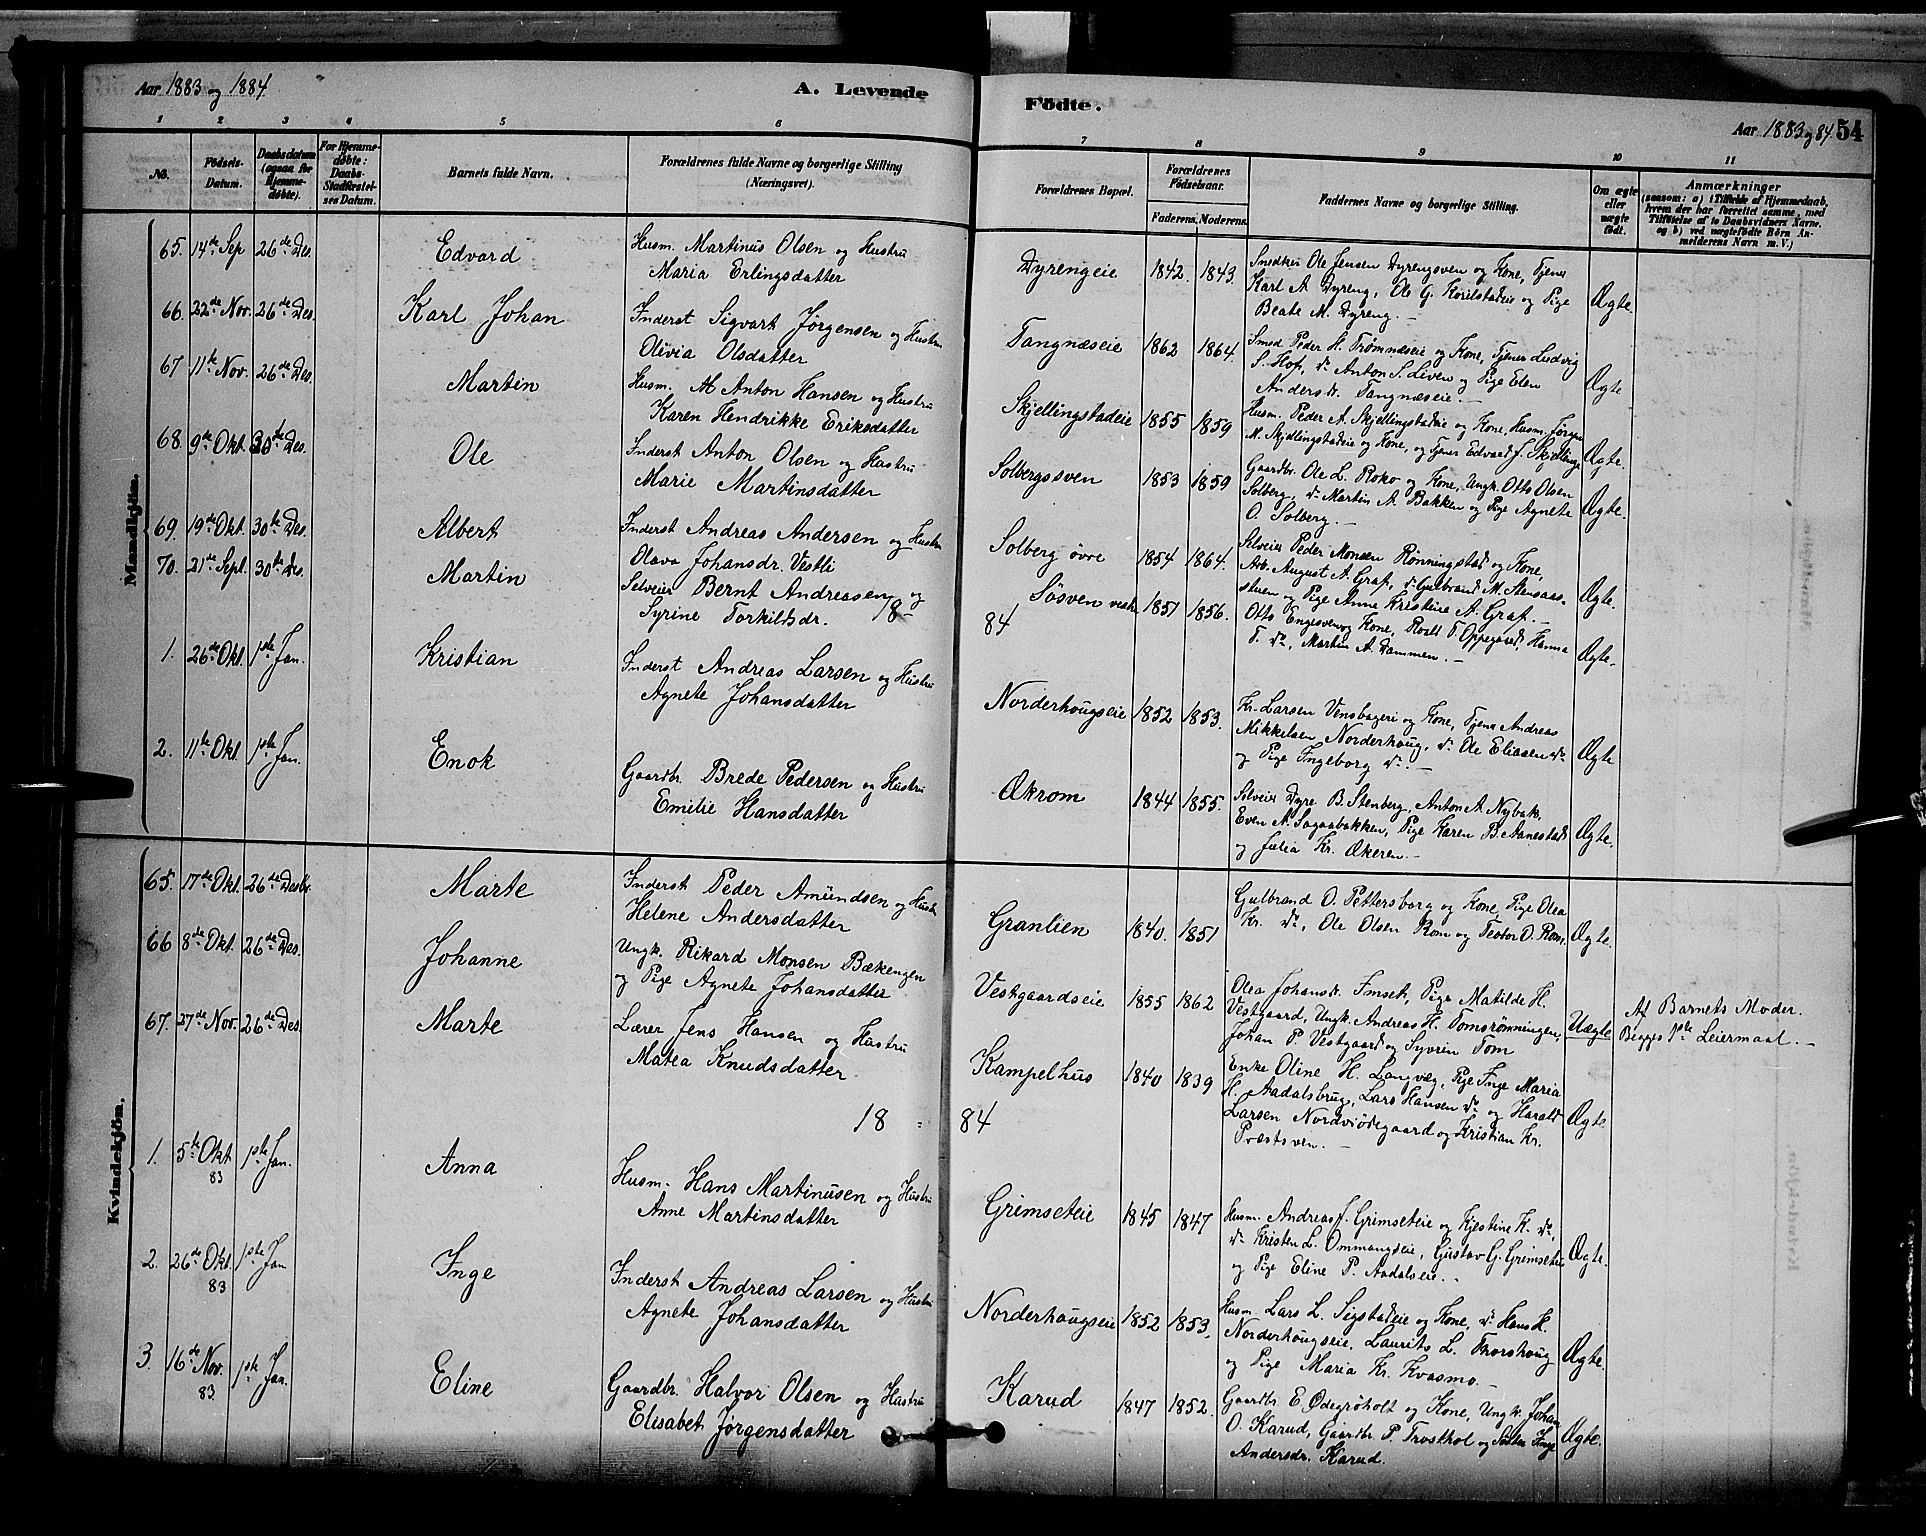 Aar 1883 og 1884
A. Levende
Födte.
Aar 1883 og 84. 54
1 2 3 4 5 6 7 8 9 10 11
No.
Födsels-Datum.
Daabsdatum (ogsaa for Hjemmedöbte).
For Hjemmedöbte: Daabs-Stadfæstelses Datum.
Barnets fulde Navn.
Forældrenes fulde Navne og borgerlige Stilling (Næringsvei).
Forældrenes Bopæl.
Forældrenes Födselsaar.
Faderens. Moderens.
Faddernes Navne og borgerlige Stilling.
Om ægte eller uægte födt.
Anmærkninger
(saasom: a) i Tilfælde af Hjemmedaab,
hvem der har forrettet samme, med
Tilföielse af to Daabsvidners Navne,
og b) ved uægtefödte Börn An-
melderens Navn m. V.)
Mandkjön.
65. 14de Sep 26de Des. Edvard
Husm. Martinus Olsen og Hustru
Maria Erlingsdatter
Dyrengeie 1842. 1843.
Snedker Ole Jensen Dyrengsven og Kone, Tjener
Karl A. Dyreng, Ole G. og Pige
Beate M. Dyreng. –
Ægte.
66. 22de Nov. 26de Des. Karl Johan
Inderst Sigvart Jørgensen og Hustru
Olivia Olsdatter
Tangnæseie 1862 1864.
Smed Peder H. Trømnæseie og Kone, Tjener Ludvig
S. Hof, do Anton S. Liven og Pige Elen
Andersdr. Tangnæseie. –
Ægte
67 11te Nov. 26de Des. Martin
Husm. M Anton Hansen og Hustru
Karen Hendrikke Eriksdatter
Skjellingstadeie 1855 1859
Husm. Peder A. Skjellingstadeie og Kone, Husm. Jørgen
M. Skjellingstadeie og Kone, og Tjener Edvard J. Skjellings
Ægte.
68. 9de Okt. 30te Des. Ole
Inderst Anton Olsen og Hustru
Marie Martinsdatter
Solbergsven 1853 1859
Gaardbr. Ole L. Roko og Kone, Ungk. Otto Olsen
Solberg, do Martin A. Bakken og Pige Agnete
O. Solberg. –
Ægte.
69. 19de Okt. 30te Des. Albert
Inderst Andreas Andersen og Hustru
Olava Johansdr. Vestli
Solberg øvre 1854 1864.
Selveier Peder Monsen Rønningstad og Kone,
Arb. August A. Graf, do Gulbrand M. Stensaas-
stuen og Pige Anne Kristine A. Graf. –
Ægte.
70. 21de Sept. 30te Des. Martin
Selveier Bernt Andreasen og
Syrine Torkildsdr.
Søsven vestre 1851 1856.
Otto Engesven og Kone, Roald T. Oppegaard, Hanna
T. do, Martin A. Dammen. –
Ægte.
18 84
1. 26de Okt. 1ste Jan. Kristian
Inderst Andreas Larsen og Hustru
Agnete Johansdatter
Norderhougseie 1852 1853.
Kr. Larsen og Kone, Tjener Andreas
Mikkelsen Norderhoug, do Ole Eliasen do
og Pige Ingeborg do. –
Ægte
2. 11te Okt. 1ste Jan. Enok
Gaardbr. Brede Pedersen og Hustru
Emilie Hansdatter
Økrom 1844 1855.
Selveier Dyre B. Stenberg, Anton A. Nybak,
Even N. Sagaabakken, Pige Karen B. Aanestad
og Julia Kr. Økeren. –
Ægte.
Kvindekjön.
65. 17de Okt. 26de Desbr. Marte
Inderst Peder Amundsen og Hustru
Helene Andersdatter
Granlien 1840. 1851
Gulbrand O. Pettersborg og Kone, Pige Olea
Kr. do, Ole Olsen Rom og Teodor O. Rom.
Ægte.
66 8de Okt. 26de Des. Johanne
Ungk. Rikard Monsen Bækengen
og Pige Agnete Johansdatter
Vestgaardseie 1855 1862
Olea Johansdr. Imset, Pige Matilde H.
Vestgaard, Ungk. Andreas H. Tomsrønningen,
Johan P. Vestgaard og Syvrin Tom
Uægte
Af Barnets Moder.
Begges 1ste Leiermaal. –
67. 27de Nov. 26de Des. Marte
Lærer Jens Hansen og Hustru
Matea Knudsdatter
Kampelhus 1840 1839
Enke Oline H. Langvæg, Pige Inge Maria
H. Aadalsbrug, Lars Hansen do og Harald
Larsen Nordviödegaard og Kristian Kr.
Præstsven. –
Ægte
18 84
1. 5te Okt. 83 1ste Jan. Anna
Husm. Hans Martinusen og Hustru
Anne Martinsdatter
Grimseteie 1845 1847
Husm. Andreas J. Grimseteie og Kjestine K. do,
do Kristen L. Ommangseie, Gustav G. Grimseteie
og Pige Eline P. Aadalseie. –
Ægte.
2. 26de Okt. 83 1ste Jan Inge
Inderst Andreas Larsen og Hustru
Agnete Johansdatter
Norderhougseie 1852 1853.
Husm. Lars L. Sigstadeie og Kone, do Hans H.
Norderhougseie, Laurits L. Thorshoug
og Pige Maria Kr. Kvasmo. –
Ægte.
3. 16de Nov. 83 1ste Jan. Eline
Gaardbr. Halvor Olsen og Hustru
Elisabet Jørgensdatter
Karud 1847 1852.
Gaardbr E. Ødegrøholt og Kone, Ungk. Johan
O. Karud, Gaardbr. P. Trosthol og Inge
Andersdr. Karud.
Ægte.